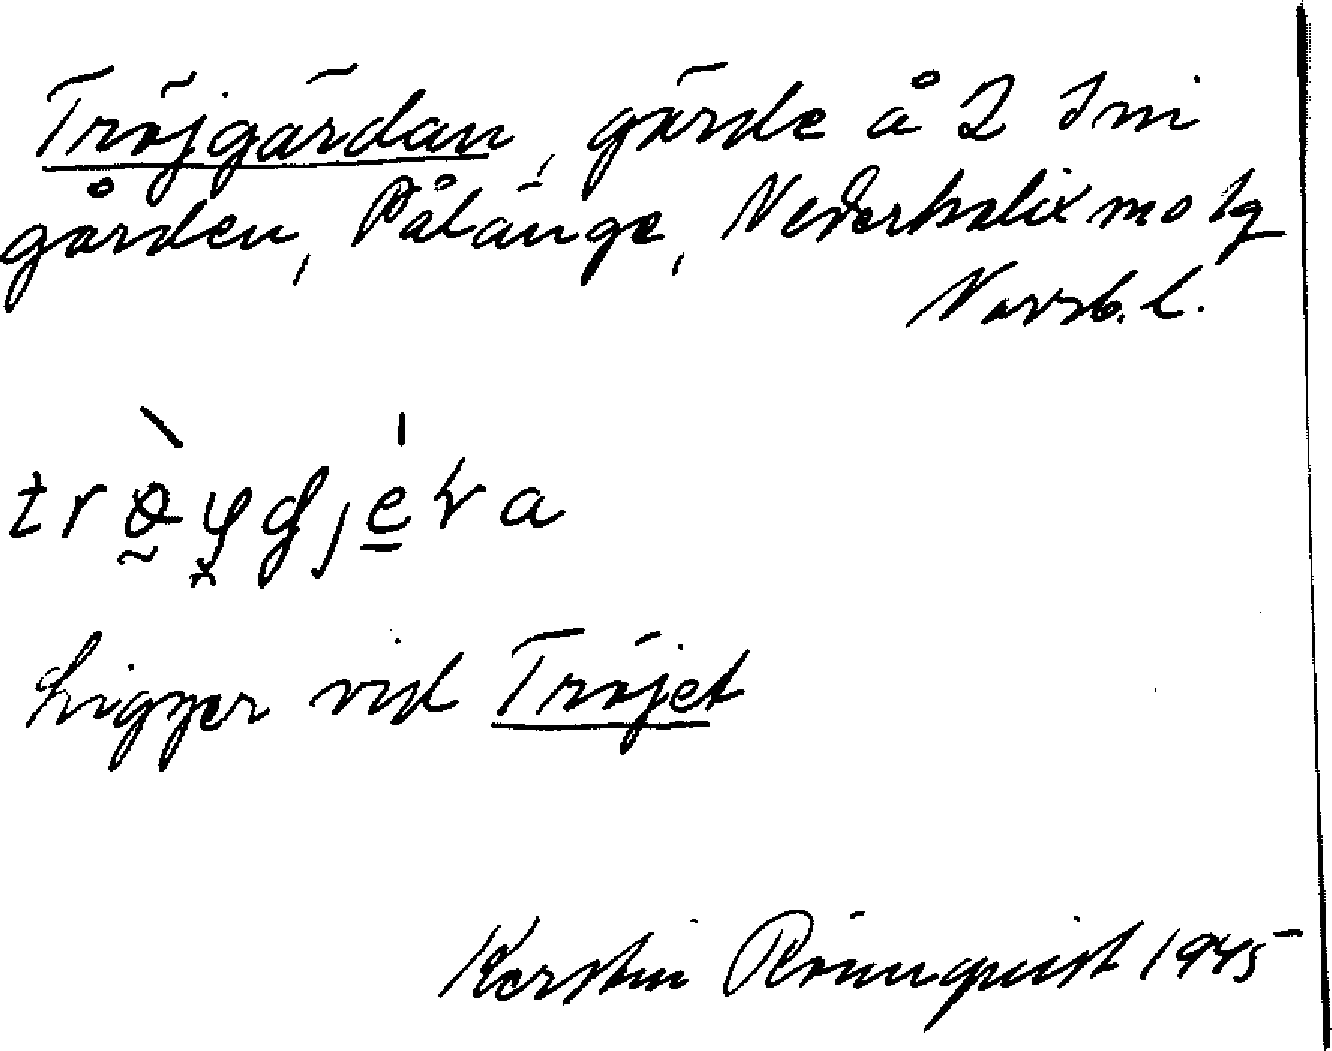 Tröjgärdan, gärde å 2 Smi
gården, Pålänge, Nederkalix sn
Norrb. l.
Ligger vid Tröjet
Kerstin Rönnquist 1945